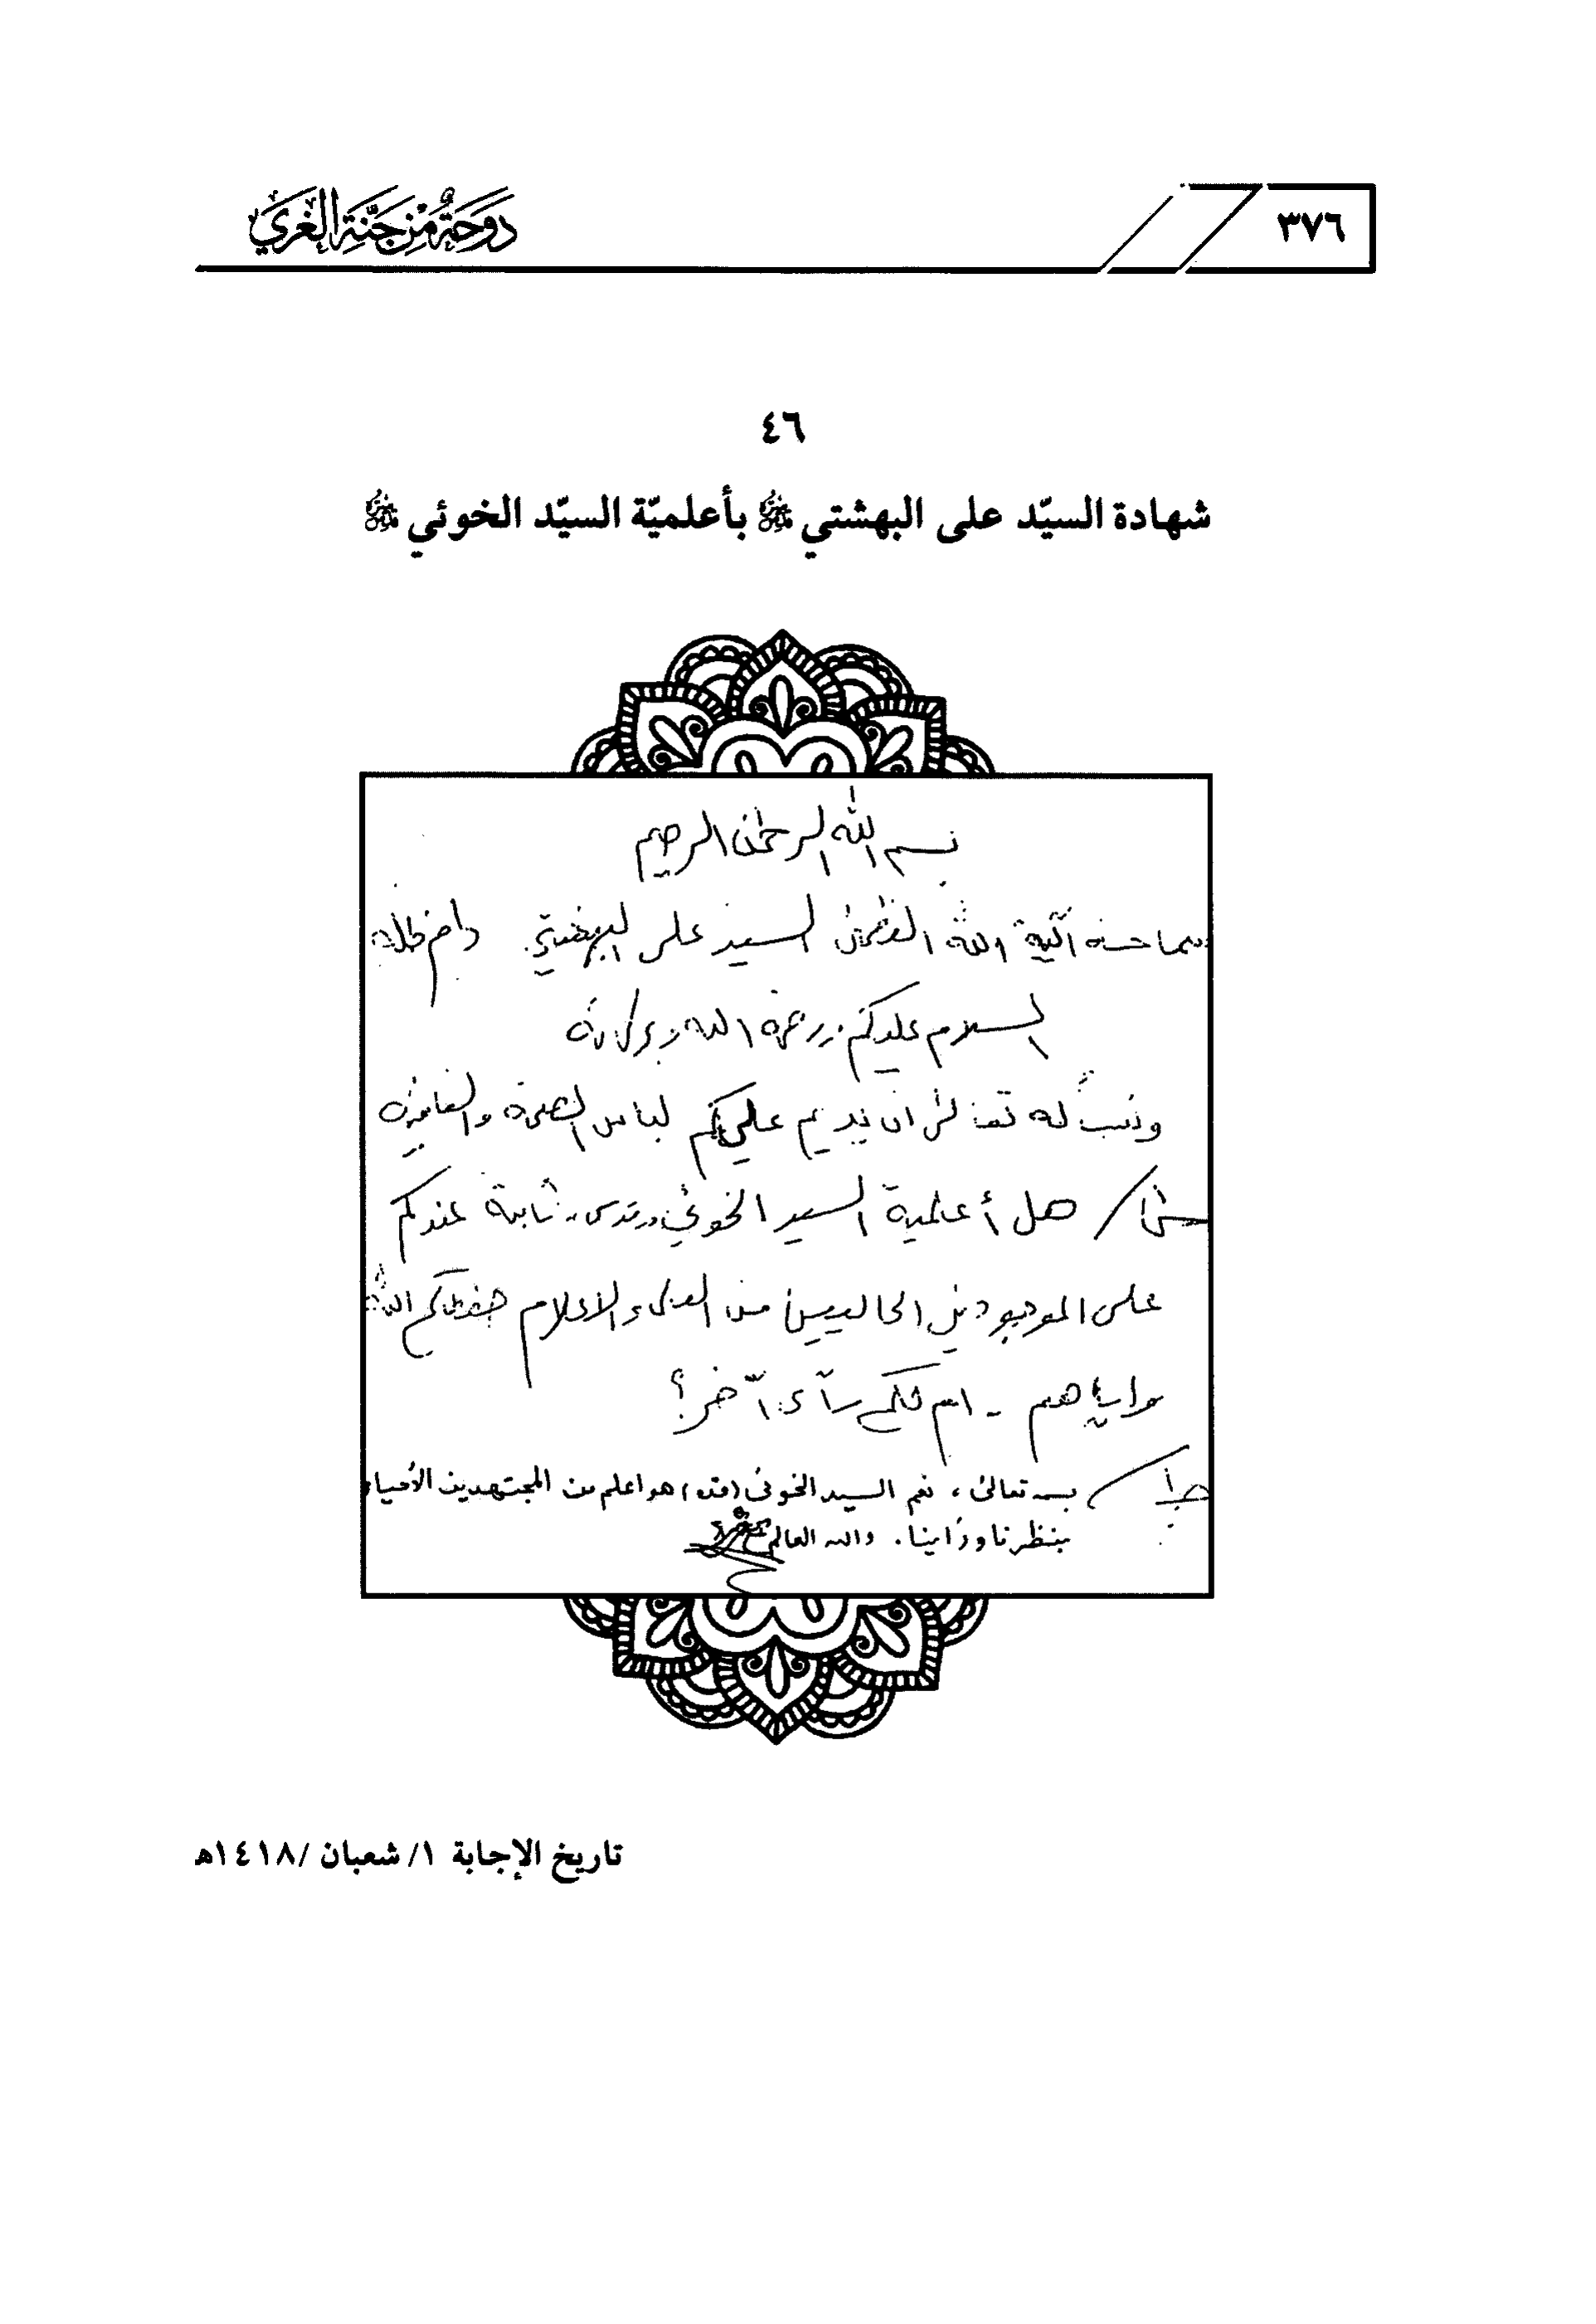 ٣٧٦
دَوحَةٌ مِّن جَنَّةِ الغَري
٤٦
شهادة السيّد علي البهشتي ﷺ بأعلميّة السيّد الخوئي
بسم الله الرحمن الرحيم
سماحة آية الله العظمى السيد علي البهشتي دام ظله
السلام عليكم ورحمة الله وبركاته
ونسأله تعالى ان يديم عليكم لباس الصحة والعافية
س١/ هل أعلمية السيد الخوئي «قدس» ثابتة عندكم
على الموجودين الحاليين من العلماء الاعلام حفظكم الله
واياهم - ام لكم رأي آخر؟
ج١/ بسمه تعالى، نعم السيد الخوئي (قده) هو اعلم من المجتهدين الأحياء
بنظرنا ورأينا. والله العالم
تاريخ الإجابة ١/ شعبان /١٤١٨هـ